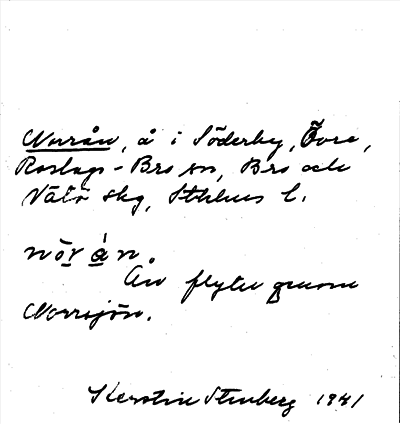 Norrån, å i Söderby, Övre,
Roslags-Bro sn, Bro och
Vätö skg, Sthlms l.
nō̱r ȧ̱ n.
Ån flyter genom
Norrsjön.
Kerstin Stenberg 1941